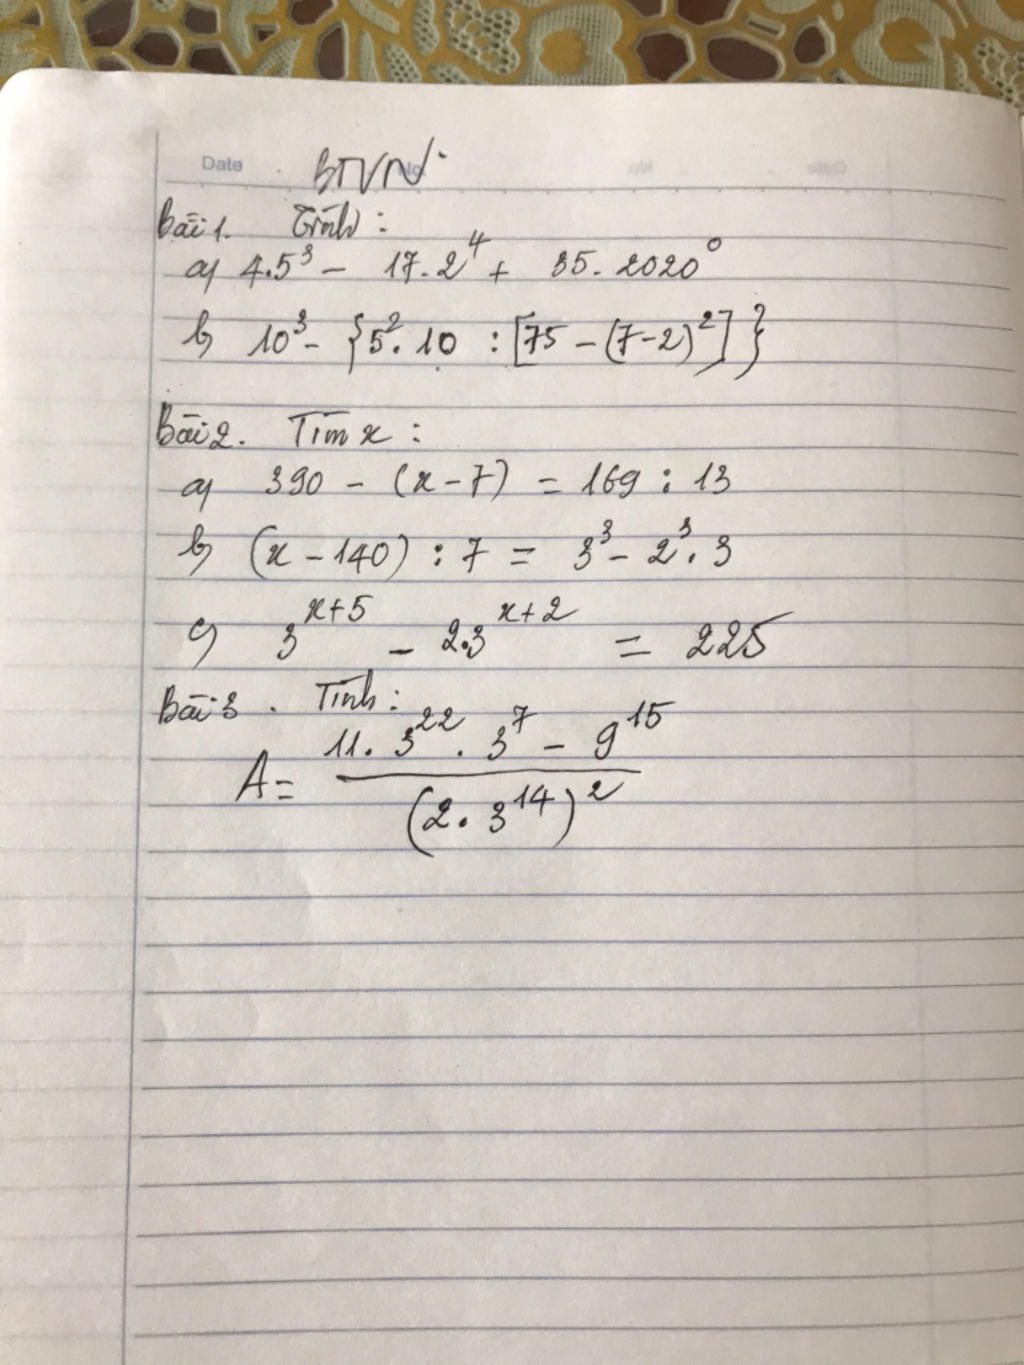 Date No.
BTVN
Bài 1. Tính:
a) 4.5³ - 17.2⁴ + 35.2020⁰
b) 10³ - {5².10 : [75 - (7-2)²]}
Bài 2. Tìm x:
a) 390 - (x-7) = 169 : 13
b) (x - 140) : 7 = 3³ - 2³.3
c) 3^(x+5) - 2.3^(x+2) = 225
Bài 3. Tính:
A = (11.3²².3⁷ - 9¹⁵) / (2.3¹⁴)²